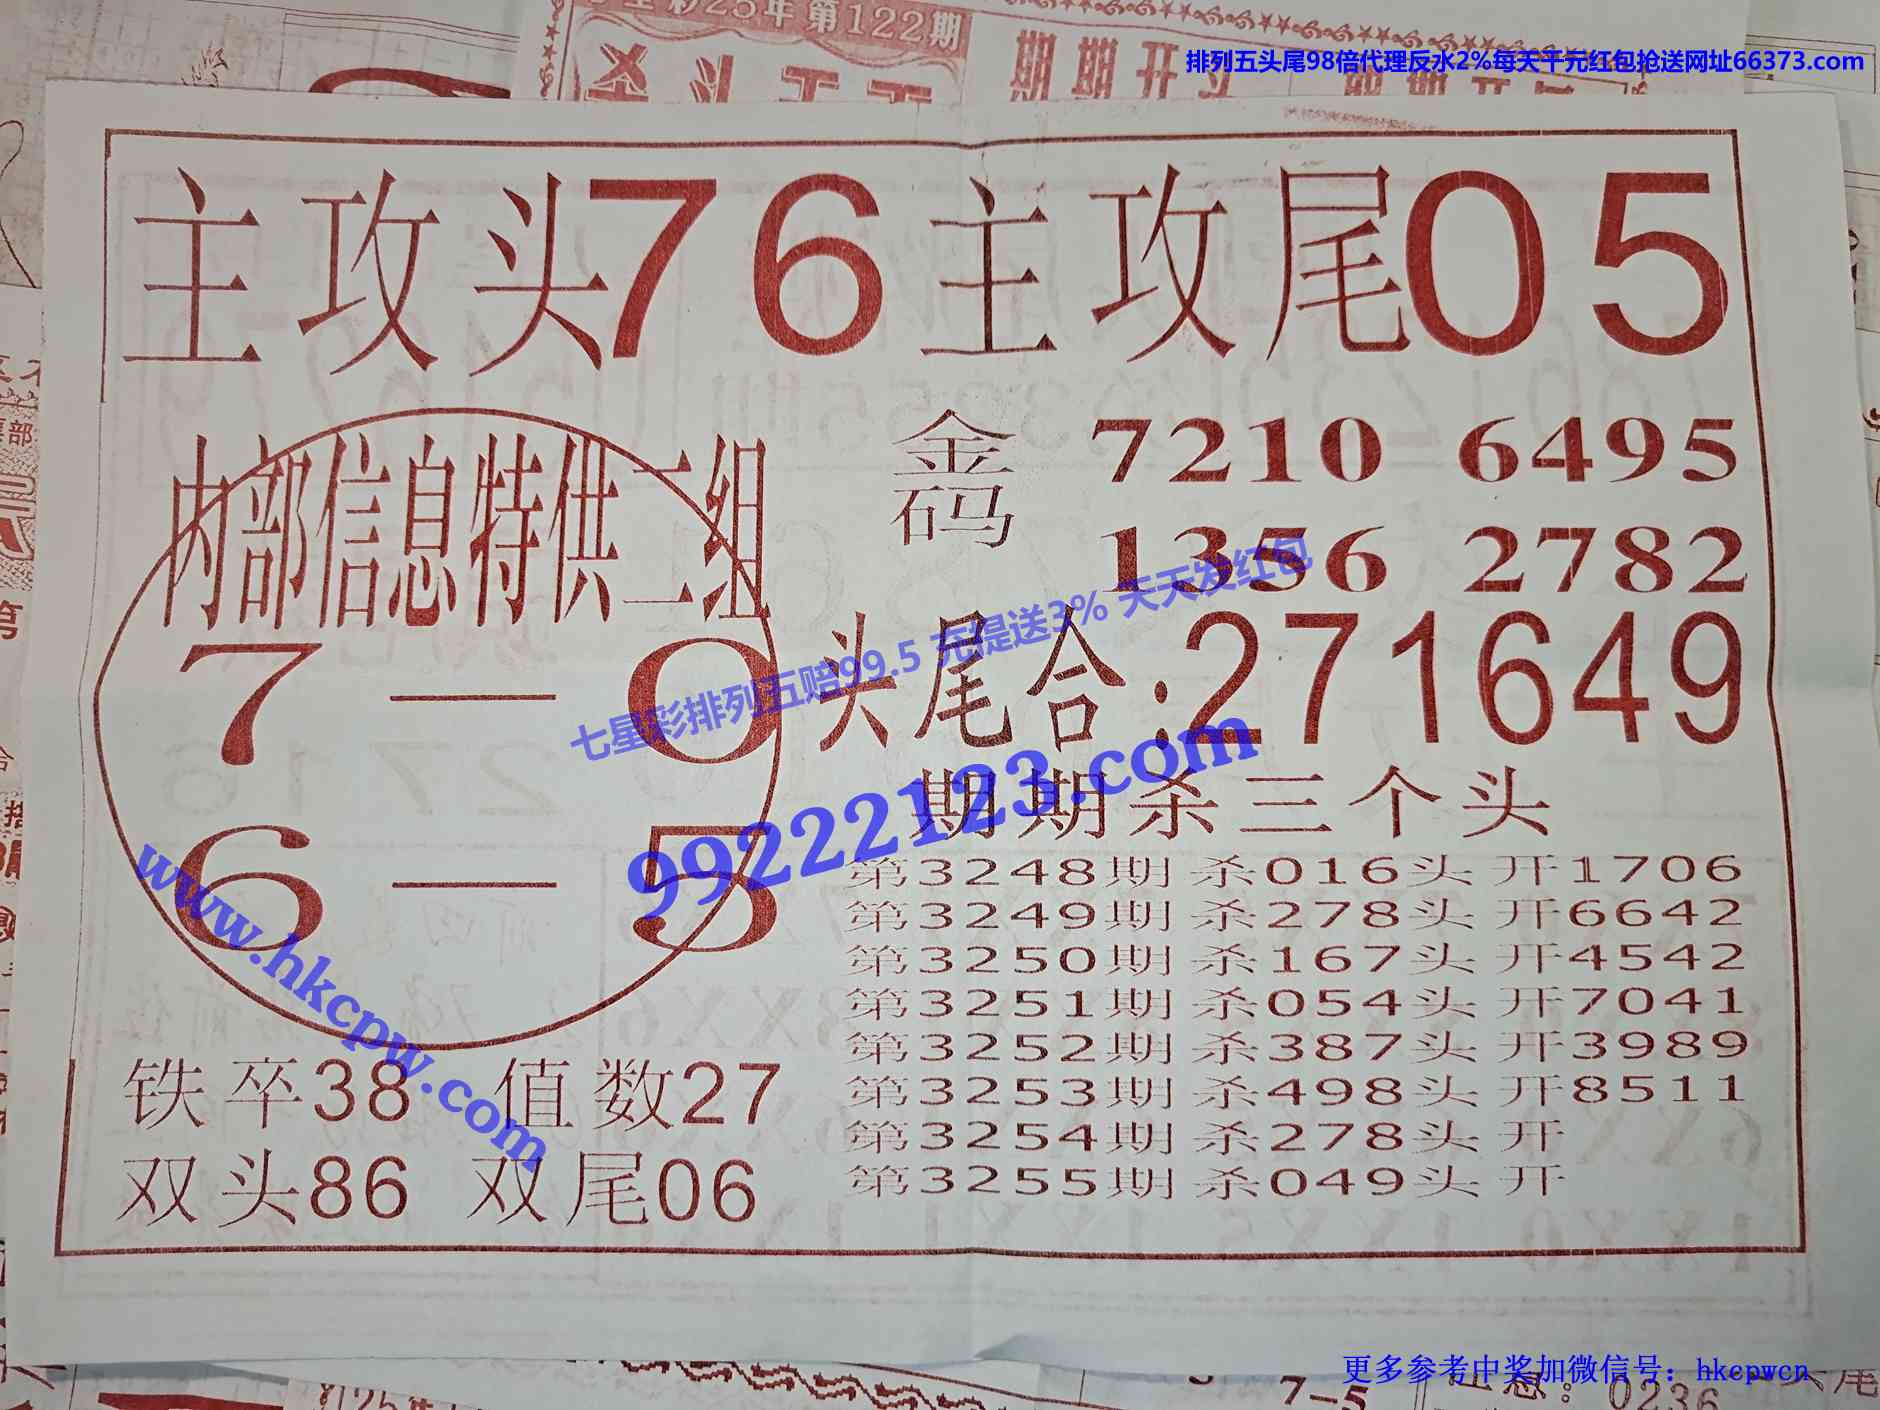 七星彩25年第122期
排列五头尾98倍代理反水2%每天千元红包抢送网址66373.com
主攻头76 主攻尾05
内部信息特供二组
7—0
6—5
金码 7210 6495
1356 2782
七星彩排列五赔99.5 充提送3% 天天发红包
头尾合:271649
99222123.com
www.hkcpw.com
期期杀三个头
第3248期 杀016头 开1706
第3249期 杀278头 开6642
第3250期 杀167头 开4542
第3251期 杀054头 开7041
第3252期 杀387头 开3989
第3253期 杀498头 开8511
第3254期 杀278头 开
第3255期 杀049头 开
铁卒38 值数27
双头86 双尾06
更多参考中奖加微信号: hkcpwcn
7-5
0236